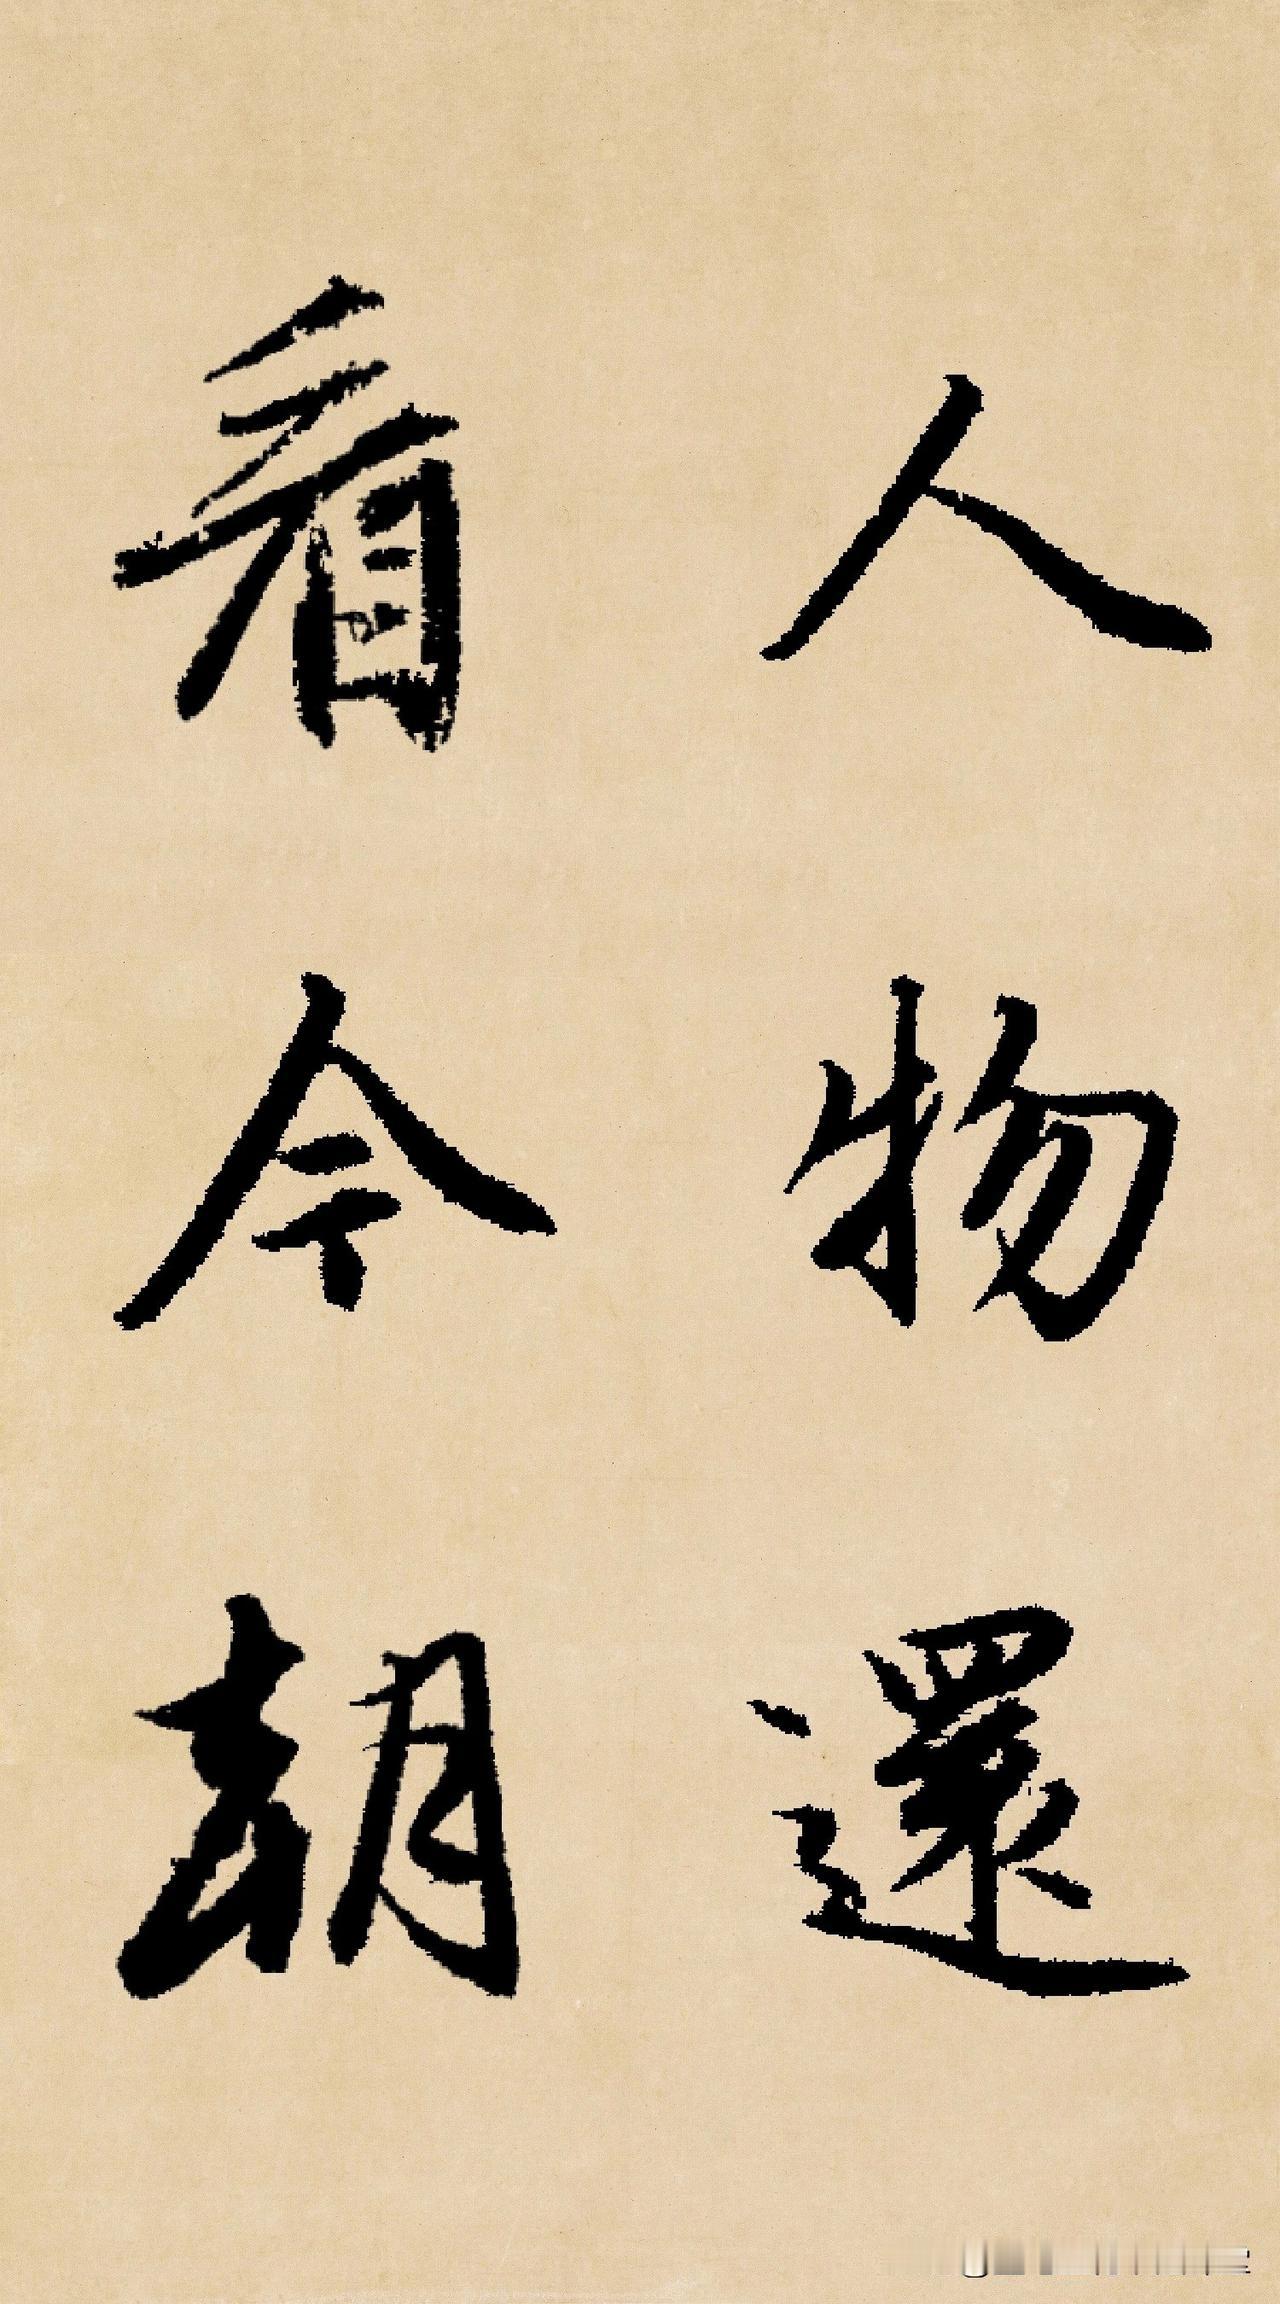 人物還
看今朝